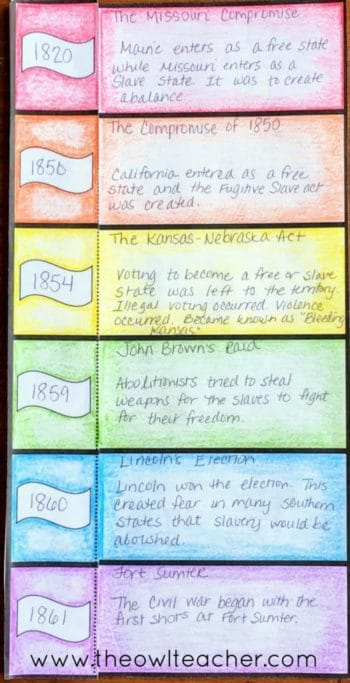 1820
The Missouri Compromise
Maine enters as a free state
while Missouri enters as a
Slave State. It was to create
a balance
1850
The Compromise of 1850
California entered as a free
state and the Fugitive Slave act
was created.
1854
The Kansas-Nebraska Act
Voting to become a free or slave
State was left to the territory.
Illegal voting occurred. Violence
occurred. Became known as "Bleeding
Kansas"
1859
John Brown's Raid
Abolitionists tried to steal
weapons for the slaves to fight
for their freedom.
1860
Lincoln's Election
Lincoln won the election. This
created fear in many southern
states that slavery would be
abolished.
1861
Fort Sumter
The Civil War began with the
first shots at Fort Sumter.
www.theowlteacher.com